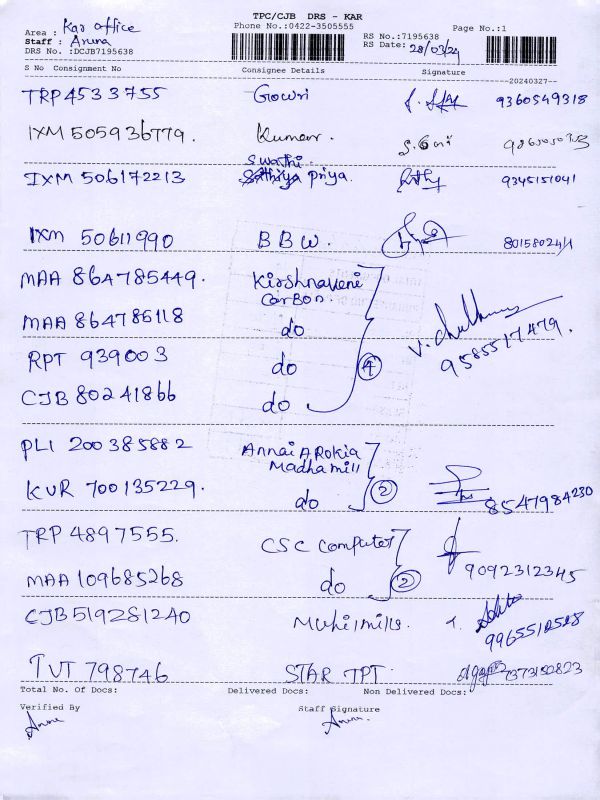 TPC/CJB DRS - KAR
Phone No.:0422-3505555
Page No.:1
Area : Kar office
Staff : Aruna
DRS No. :DCJB7195638
RS No.:7195638
RS Date: 28/03/24
S No Consignment No Consignee Details Signature
--20240327--
TRP 4533755 Gowri 9360549318
IXM 505936779. Kumar.
Swathi
IXM 506172213 Sathiya Priya. 9345151041
IXM 50611990 B B W.
MAA 864785449. Kirshnaveni
Carbon.
MAA 864786118 do
RPT 939003 do 4
CJB 80241866 do
V.
9585517479.
PLI 200385882 Annai Arokia
Madha mill
KUR 700135229. do 2 8547984230
TRP 4897555. CSC Computer
MAA 109685268 do 2 9092312345
CJB 519281240 Muhil mills.
TVT 798746 STAR TPT. 7373150823
Total No. Of Docs: Delivered Docs: Non Delivered Docs:
Verified By Staff Signature
Aruna Aruna.